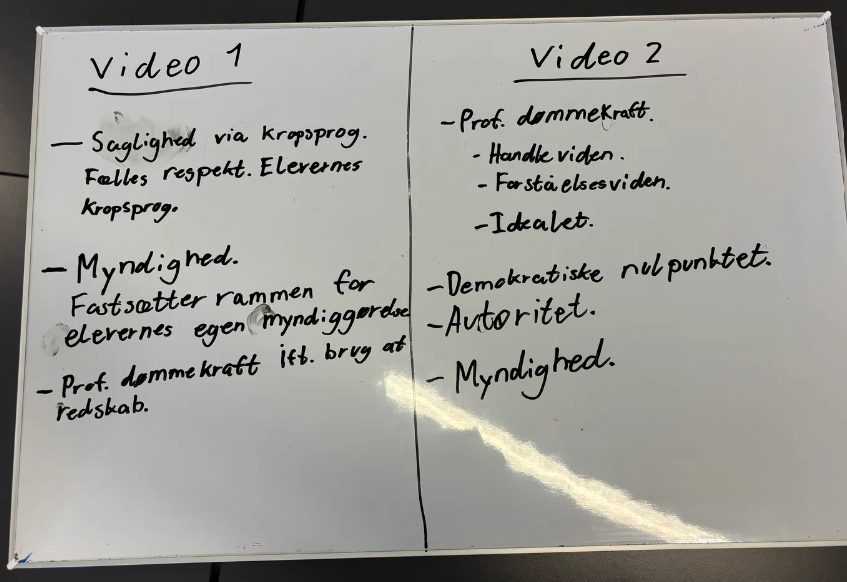 Video 1
— Saglighed via kropsprog.
Fælles respekt. Elevernes
kropsprog.
— Myndighed.
Fastsætter rammen for
elevernes egen myndiggørelse
— Prof. dømmekraft ift. brug af
redskab.
Video 2
- Prof. dømmekraft.
- Handle viden.
- Forståelsesviden.
- Idealet.
- Demokratiske nulpunktet.
- Autoritet.
- Myndighed.